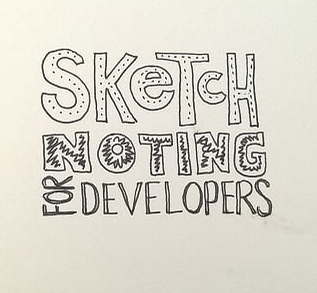 SKeTcH
NOTING
FOR DEVELOPERS